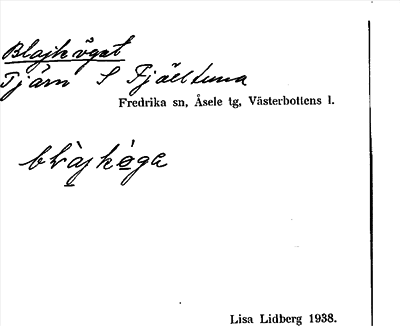 Blajkögat
Tjärn S Fjälltuna
Fredrika sn, Åsele tg, Västerbottens l.
blàjkø̀ga
Lisa Lidberg 1938.